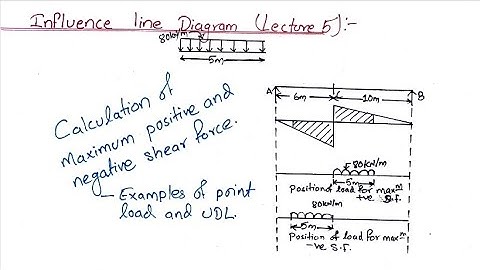 Influence line Diagram (Lecture 5):-
80kN/m
5m
Calculation of
maximum positive and
negative shear force.
- Examples of point
load and UDL.
A
B
6m
10m
80kN/m
5m
Position of load for maxm
+ve S.F.
80kN/m
5m
Position of load for maxm
-ve S.F.